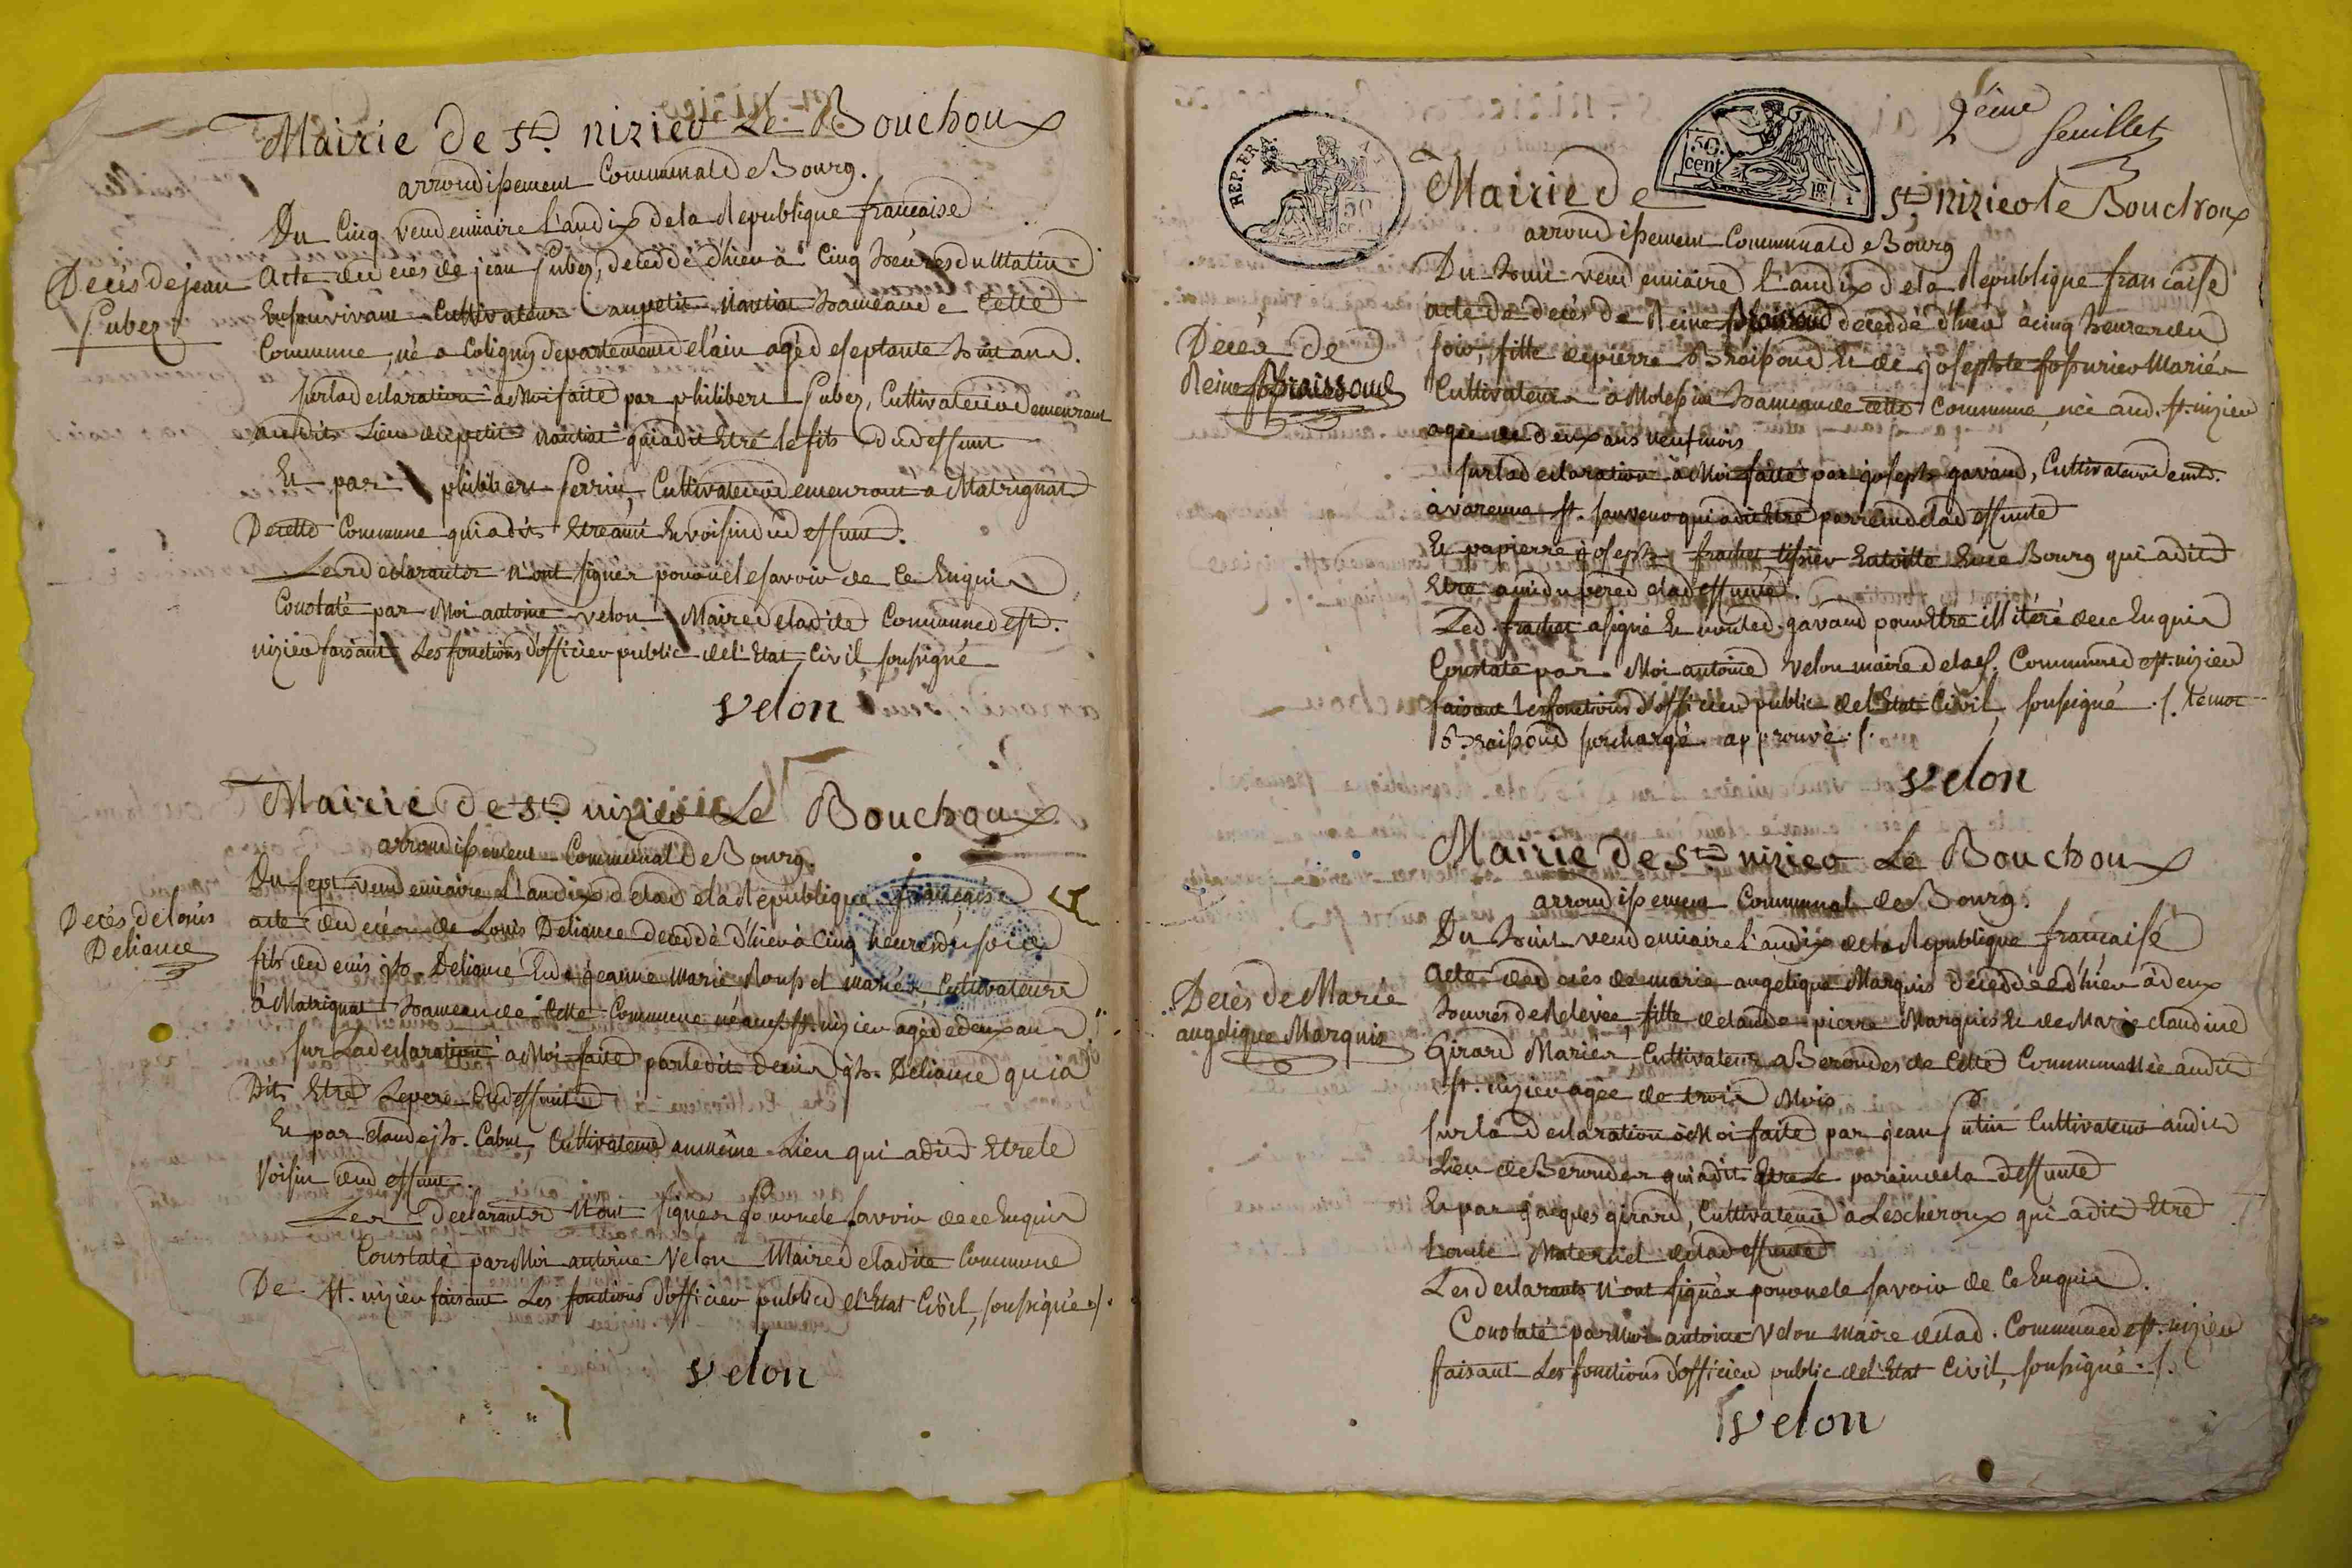 Mairie de St. nizier Le Bouchoux
arrondissement Communal de Bourg.
Du Cinq vendemiaire l'an dix de la Republique francaise
Decès de jean
Acte du decès de jean Pubez, decedé d'hier à Cinq heures du Matin
Pubez
En son vivant Cultivateur au petit Nantiat hameau de Cette
Commune, né a Coligny departement de l'ain agé de septante huit ans.
sur la declaration à Moi faite par philibert Pubez, Cultivateur demeurant
audit Lieu du petit nantiat qui a dit Etre le fils du deffunt
Et par philibert Perrin, Cultivateur demeurant a Matrignat
De cette Commune qui a dit Etre ami En voisin du deffunt.
Les declarants n'ont signer pour ne le savoir de Ce Enquis
Constaté par Moi antoine velon Maire de ladite Commune de st.
nizier faisant Les fonctions d'officier public de l'Etat Civil soussigné
velon
Mairie de St. nizier Le Bouchoux
arrondissement Communal de Bourg.
Du sept vendemiaire l'an dix de la de la Republique francaise
Decès de louis
Deliance
acte du decès de Louis Deliance decedé d'hier à Cinq heures du soir
fils de denis jh. Deliance Et de jeanne Marie Roussel mariés, Cultivateurs
à Matrignat hameau de Cette Commune né aud. st. nizier agé de deux ans
sur La declaration à Moi faite par ledit denis jh. Deliance qui a
Dit Etre Le pere du deffunt
Et par claude jh. Cabut, Cultivateur au même Lieu qui a dit Etre le
Voisin du deffunt.
Les Declarants N'ont signer pour ne le savoir de ce Enquis
Constaté par Moi antoine Velon Maire de ladite Commune
De st. nizier faisant Les fonctions d'officier public de l'Etat Civil, soussigné ./.
velon
2ème feuillet
REP. FRA.
50 cent
Mairie de St. nizier le Bouchoux
arrondissement Communal de Bourg
Du huit vendemiaire l'an dix de la Republique francaise
acte de decès de Reine Braissoud decedée d'hier à cinq heures du
Decès de
Reine Braissoud
soir, fille de pierre Braissoud Et de josephte fossurier Mariés
Cultivateurs à Molessia hameau de cette Commune, née aud. st. nizier
agée de deux ans neuf mois
sur la declaration à Moi faite par joseph gavand, Cultivateur demt.
à varenne st. sauveur qui a dit Etre parrein de la deffunte
Et par pierre joseph frachet, tissier Entoille Bourg qui a dit
Etre ami du pere de la deffunte.
Led. frachet a signé Et non led. gavand pour Etre illitéré de ce Enquis
Constaté par Moi antoine velon maire de lad. Commune de st. nizier
faisant les fonctions d'officier public de l'Etat Civil, soussigné ./. le mot
Braissoud surchargé approuvé ./.
velon
Mairie de St. nizier Le Bouchoux
arrondissement Communal de Bourg.
Du huit vendemiaire l'an dix de la Republique francaise
Acte du decés de marie angelique Marquis decedée d'hier à deux
Decès de Marie
angelique Marquis
heures de Relevée, fille de claude pierre Marquis Et de Marie claudine
Girard Mariés, Cultivateurs a Beroudes de Cette Commune Née audit
st. nizier agée de trois Mois
sur la Declaration à Moi faite par jean Putin Cultivateur audit
Lieu de Beroudes qui a dit Etre Le parein de la deffunte
Et par jacques girard, Cultivateur à Lescheroux qui a dit Etre
L'oncle Maternel de la deffunte
Les declarants N'ont signés pour ne le savoir de Ce Enquis.
Constaté par Moi antoine velon maire de lad. Commune de st. nizier
faisant Les fonctions d'officier public de l'Etat Civil, soussigné ./.
velon